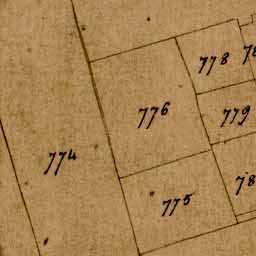 778
776
779
774
775